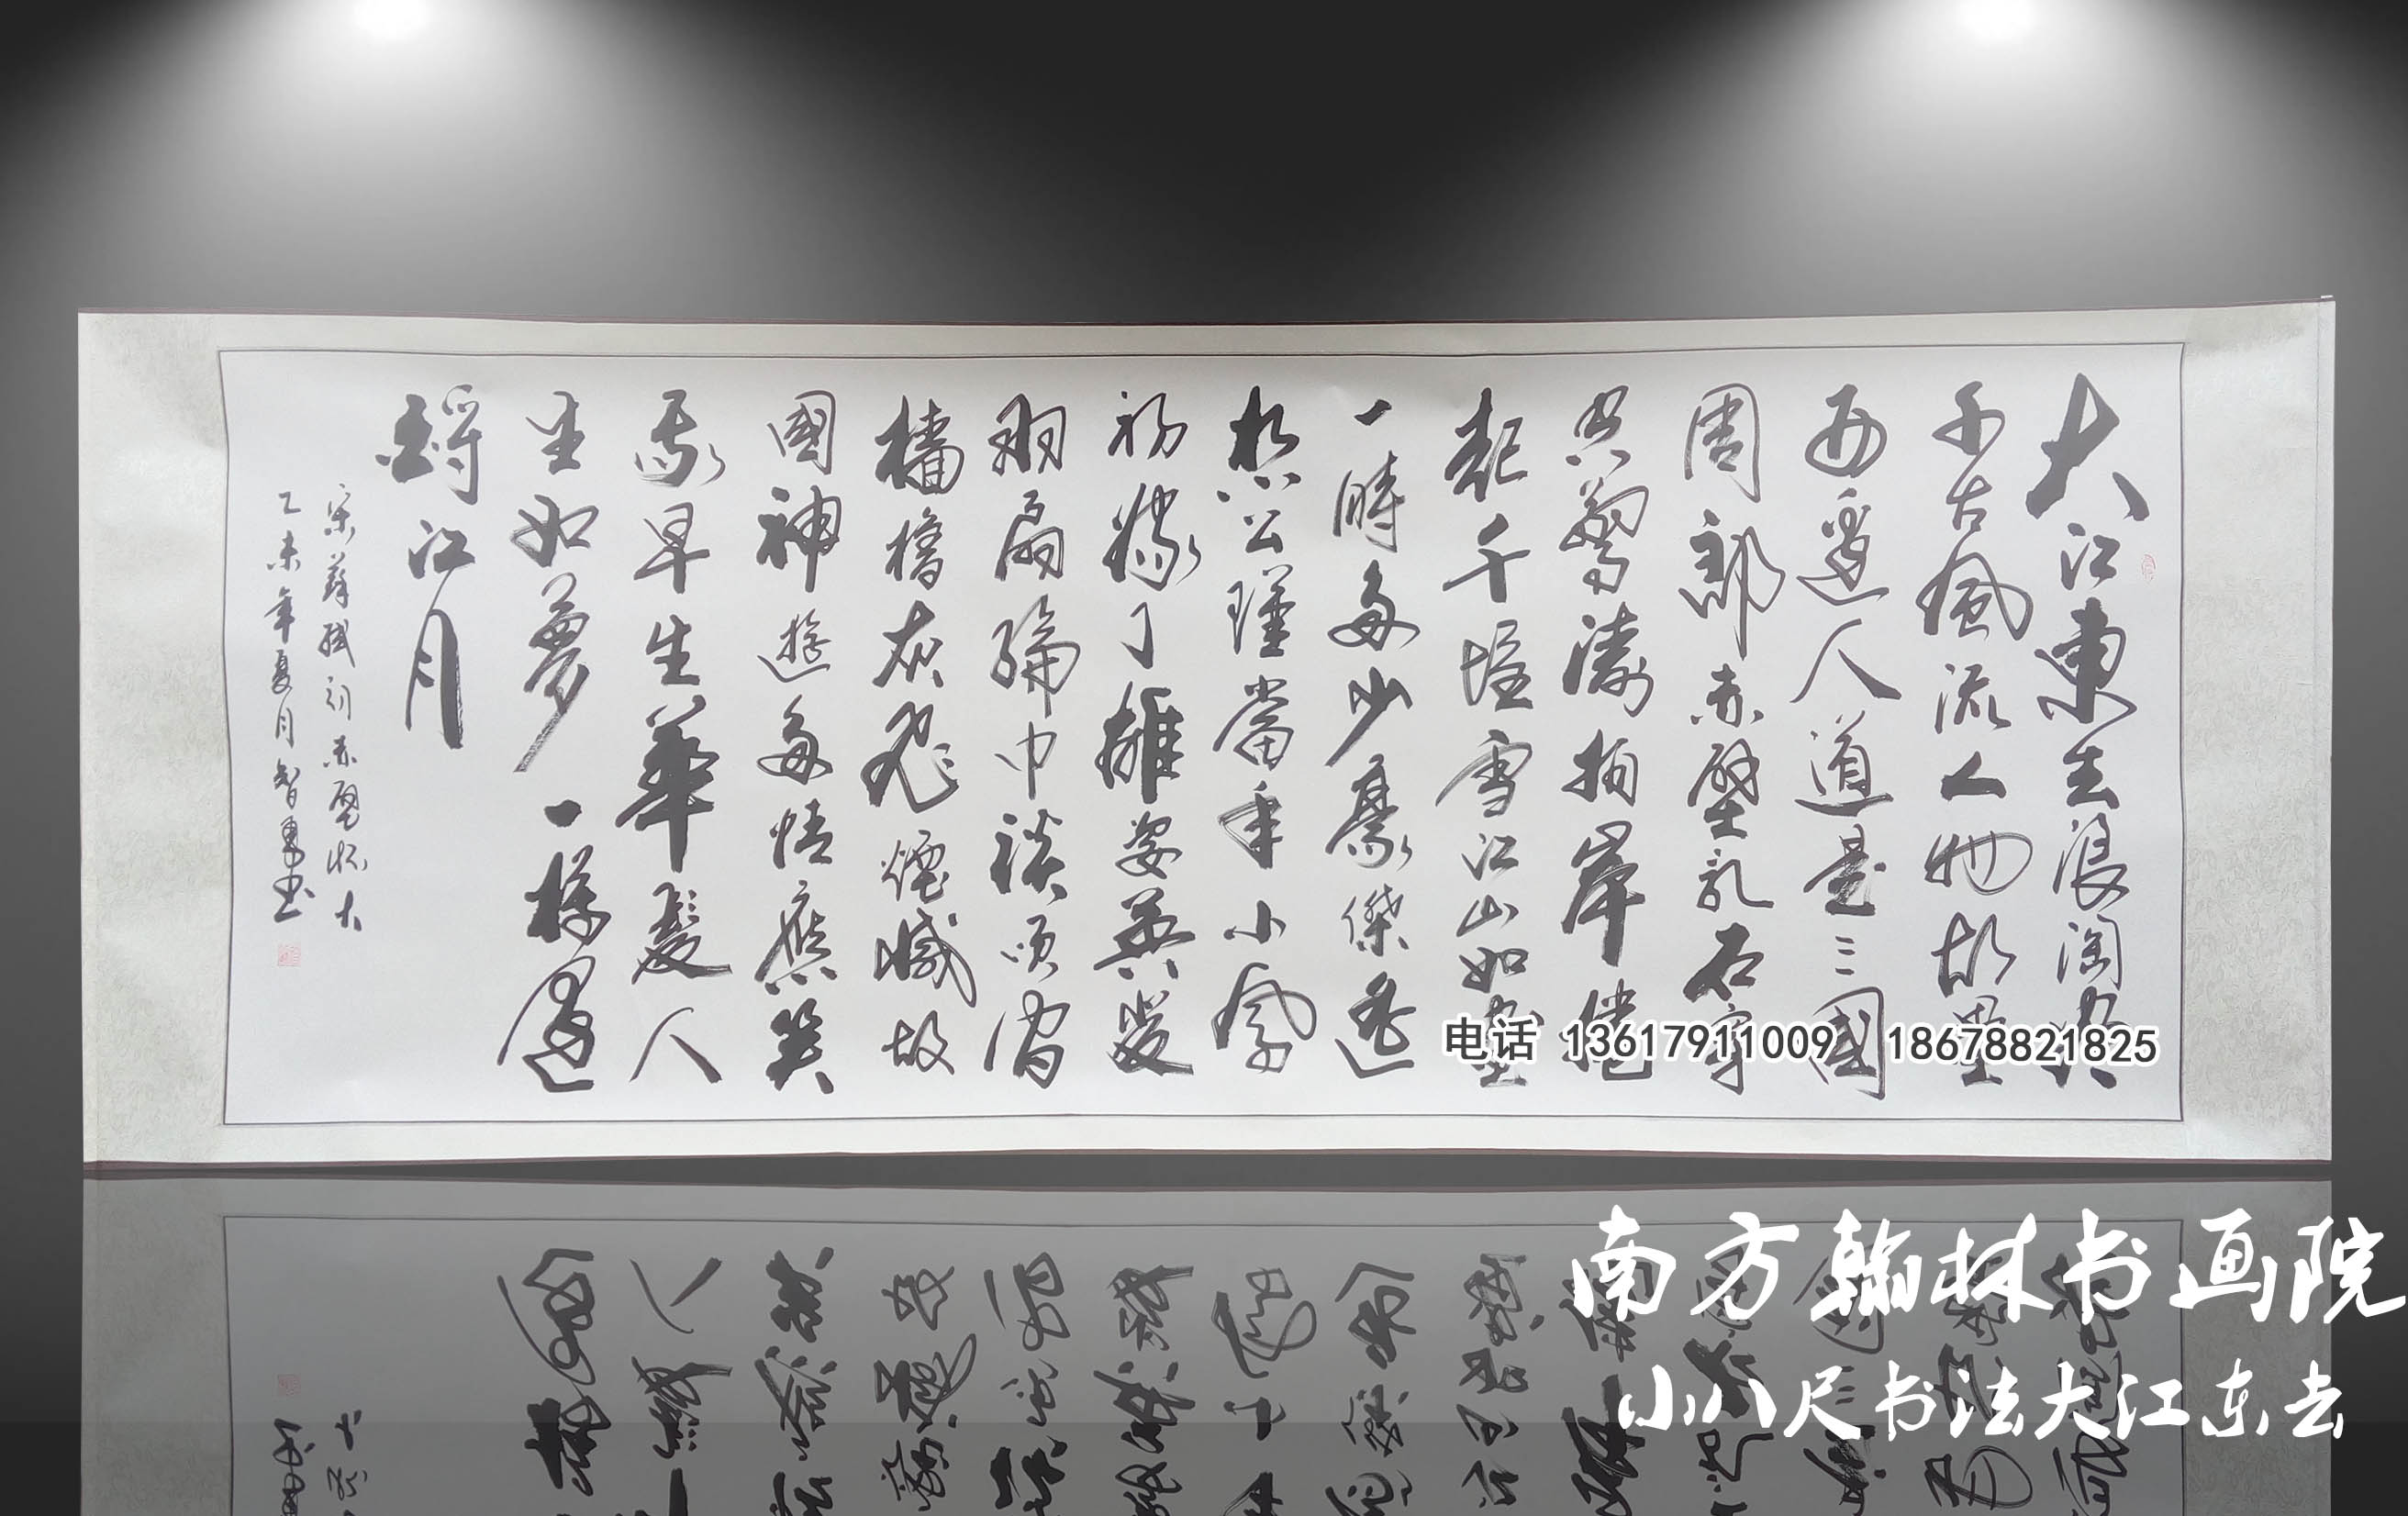 大江東去浪淘盡
千古風流人物故壘
西邊人道是三國
周郎赤壁亂石穿
空驚濤拍岸捲
起千堆雪江山如畫
一時多少豪傑遙
想公瑾當年小喬
初嫁了雄姿英發
羽扇綸巾談笑間
檣櫓灰飛煙滅故
國神遊多情應笑
我早生華髮人
生如夢一樽還
酹江月
宋蘇軾詞赤壁懷古
乙未年夏月智勇书
电话 13617911009 18678821825
南方翰林书画院
小八尺书法大江东去